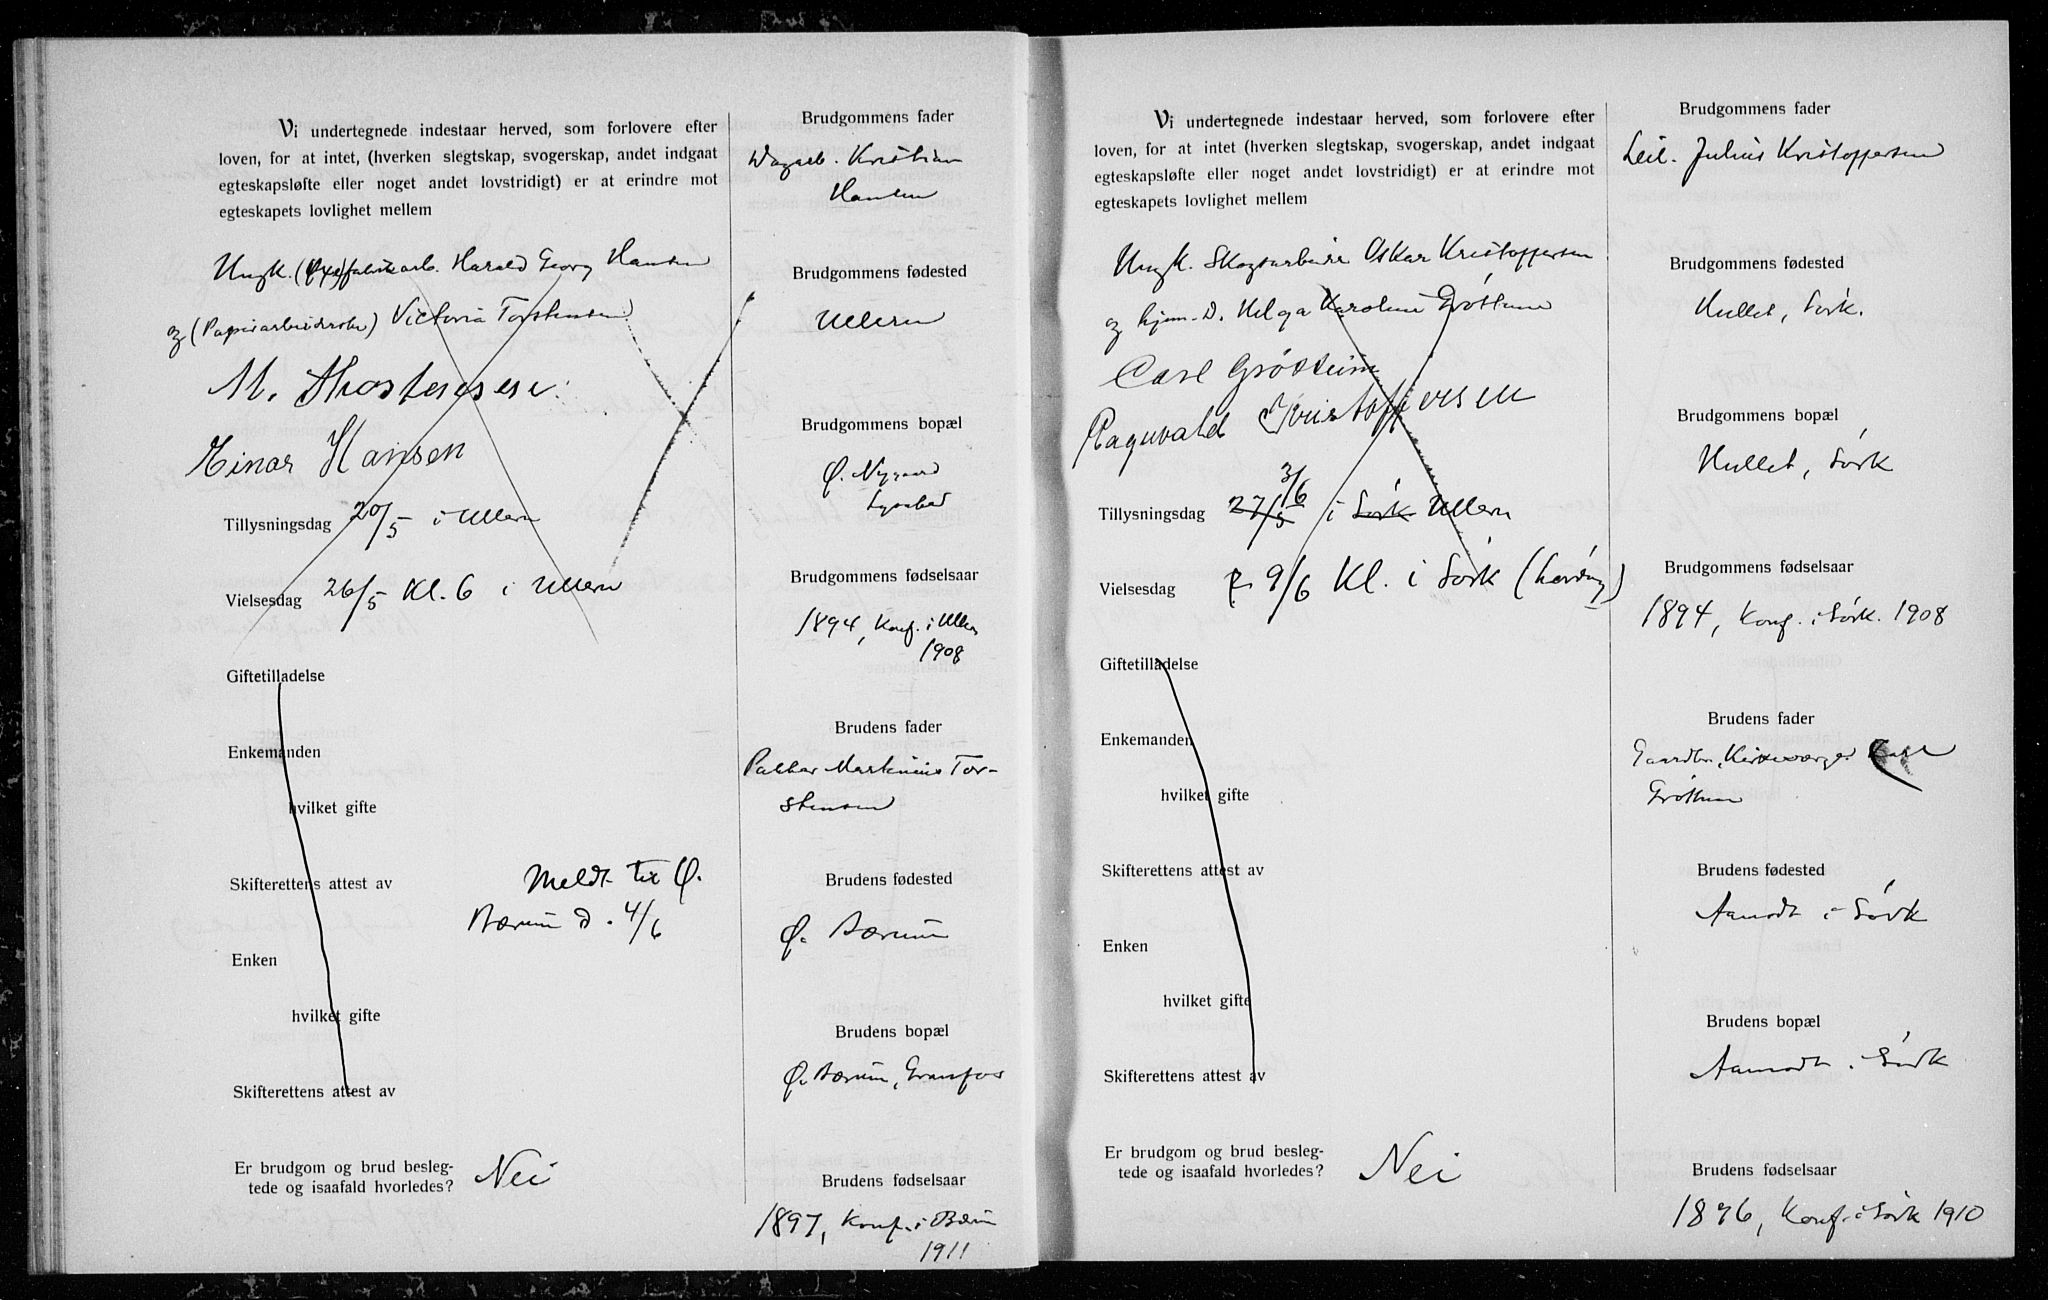 Vi undertegnede indestaar herved, som forlovere efter
loven, for at intet, (hverken slegtskap, svogerskap, andet indgaat
egteskapsløfte eller noget andet lovstridigt) er at erindre mot
egteskapets lovlighet mellem
Ungk. fabrikarb. Harald Georg Hansen
og (Papirarbeiderske) Victoria Torstensen
M. Thostensen.
Einar Hansen
Tillysningsdag 20/5 i Ullern
Vielsesdag 26/5 Kl. 6 i Ullern
Giftetilladelse
Enkemanden
hvilket gifte
Skifterettens attest av
Meldt til Ø.
Bærum d. 4/6
Enken
hvilket gifte
Skifterettens attest av
Er brudgom og brud besleg-
tede og isaafald hvorledes? Nei
Brudgommens fader
Kristian
Hansen
Brudgommens fødested
Ullern
Brudgommens bopæl
Ø. Nygaard
Lysaker
Brudgommens fødselsaar
1894, Konf. i Ullern
1908
Brudens fader
Pakker Martinius Tor-
stensen
Brudens fødested
Ø. Bærum
Brudens bopæl
Ø. Bærum, Granfos
Brudens fødselsaar
1897, Konf. i Bærum
1911
Vi undertegnede indestaar herved, som forlovere efter
loven, for at intet, (hverken slegtskap, svogerskap, andet indgaat
egteskapsløfte eller noget andet lovstridigt) er at erindre mot
egteskapets lovlighet mellem
Ungk. Skogsarbeider Oskar Kristoffersen
og hjem. D. Helga Karoline Grøttum
Carl Grøttum
Ragnvald Kristoffersen
3/6
Tillysningsdag 27/5 i Sørk Ullern
Vielsesdag 9/6 Kl. i Sørk (Lørdag)
Giftetilladelse
Enkemanden
hvilket gifte
Skifterettens attest av
Enken
hvilket gifte
Skifterettens attest av
Er brudgom og brud besleg-
tede og isaafald hvorledes? Nei
Brudgommens fader
Leil. Julius Kristoffersen
Brudgommens fødested
Hullet, Sørk.
Brudgommens bopæl
Hullet, Sørk
Brudgommens fødselsaar
1894, Konf. i Sørk. 1908
Brudens fader
Gaardbr., Kirkeværge Karl
Grøttum
Brudens fødested
Aamodt i Sørk
Brudens bopæl
Aamodt i Sørk
Brudens fødselsaar
1896, Konf. i Sørk 1910